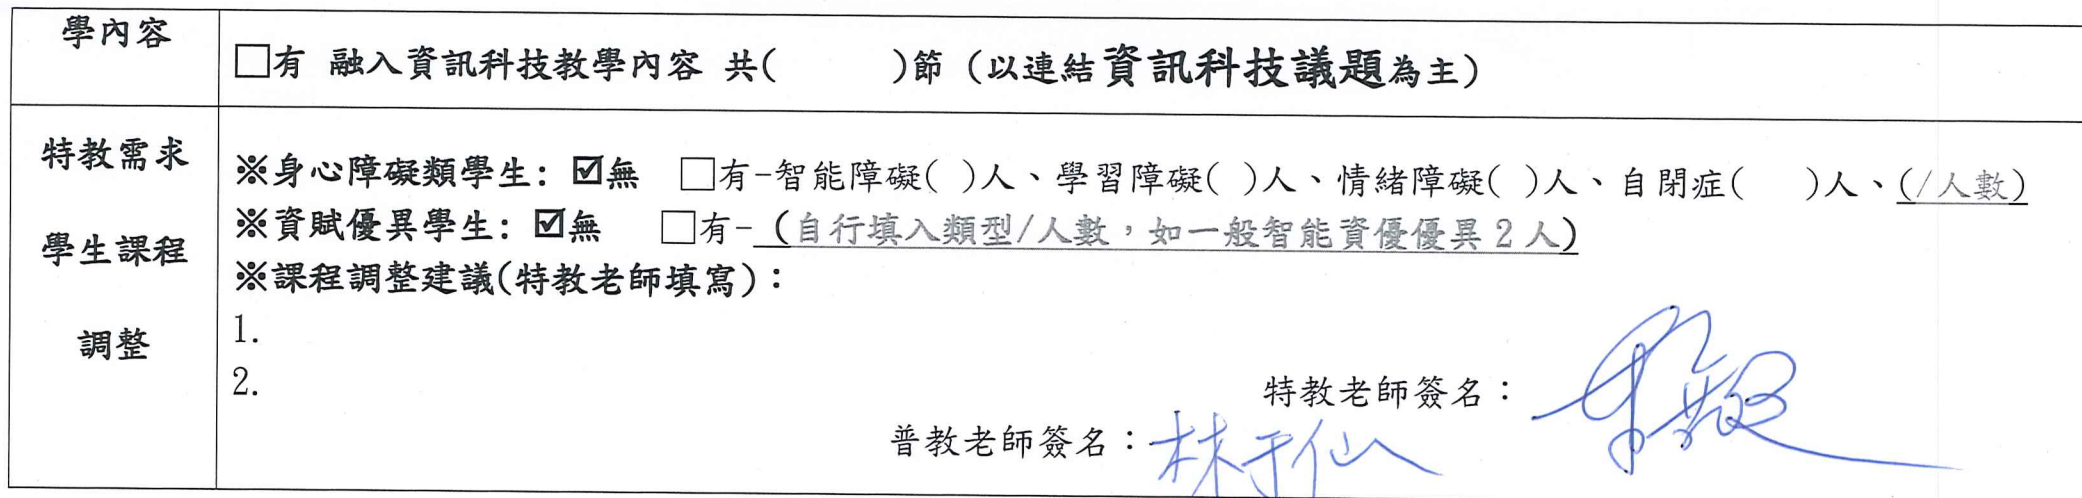 學內容
□有 融入資訊科技教學內容 共(　　　)節 (以連結資訊科技議題為主)
特教需求
學生課程
調整
※身心障礙類學生: ☑無 □有-智能障礙( )人、學習障礙( )人、情緒障礙( )人、自閉症(　)人、(/人數)
※資賦優異學生: ☑無 □有-(自行填入類型/人數，如一般智能資優優異 2 人)
※課程調整建議(特教老師填寫)：
1.
2.
特教老師簽名：
普教老師簽名：林于仙